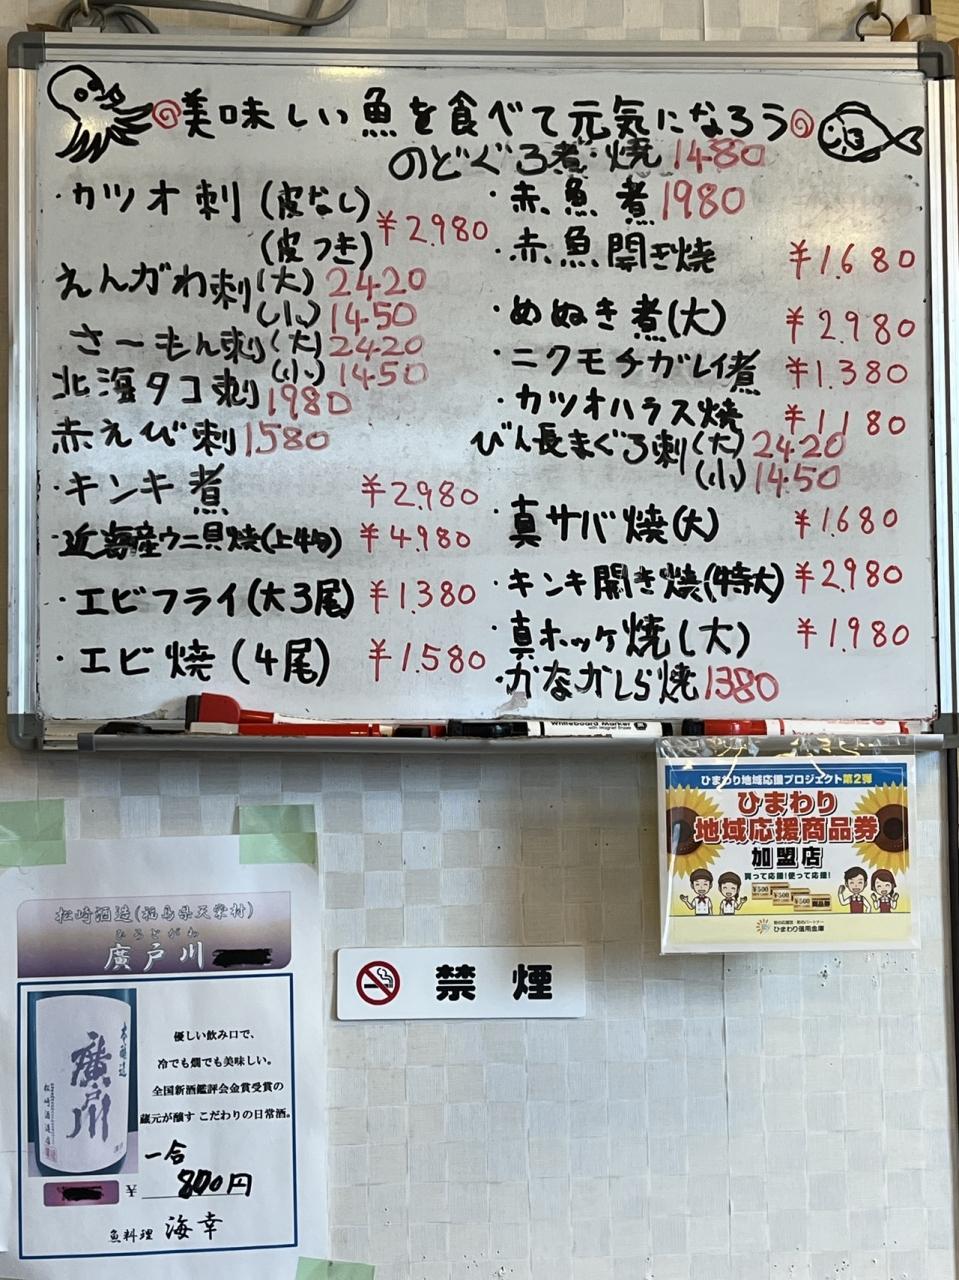 美味しい魚を食べて元気になろう
のどぐろ煮・焼 1480
・カツオ刺 (皮なし)
(皮つき) ¥2.980
えんがわ刺(大) 2420
(小) 1450
さーもん刺(大) 2420
(小) 1450
北海タコ刺 1980
赤えび刺 1580
・キンキ煮 ¥2.980
・近海産ウニ貝焼(上物) ¥4.980
・エビフライ(大3尾) ¥1.380
・エビ焼(4尾) ¥1.580
・赤魚煮 1980
・赤魚開き焼 ¥1.680
・めぬき煮(大) ¥2.980
・ニクモチガレイ煮 ¥1.380
・カツオハラス焼 ¥1180
びん長まぐろ刺(大) 2420
(小) 1450
・真サバ焼(大) ¥1.680
・キンキ開き焼(特大) ¥2.980
・真ホッケ焼(大) ¥1.980
・かながしら焼 1380
Whiteboard Marker
ひまわり地域応援プロジェクト第2弾
ひまわり
地域応援商品券
加盟店
買って応援!使って応援!
¥500 ¥500 ¥500
商品券
ひまわり信用金庫
禁煙
松崎酒造(福島県天栄村)
ひろとがわ
廣戸川
本醸造
廣戸川
松崎酒造店
優しい飲み口で、
冷でも燗でも美味しい。
全国新酒鑑評会金賞受賞の
蔵元が醸す こだわりの日常酒。
一合
¥ 800円
魚料理 海幸